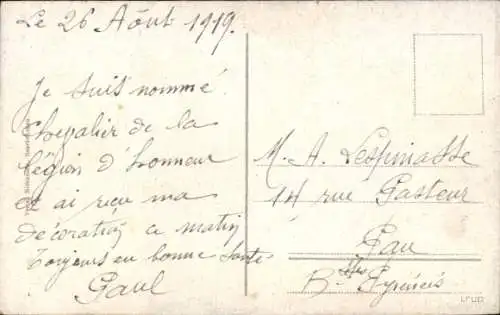 Le 26 Août 1919.
Je suis nommé
Chevalier de la
légion d'honneur
et ai reçu ma
décoration ce matin
Toujours en bonne santé
Paul
M. A. Lespinasse
14 rue Pasteur
Pau
Bses Pyrénées